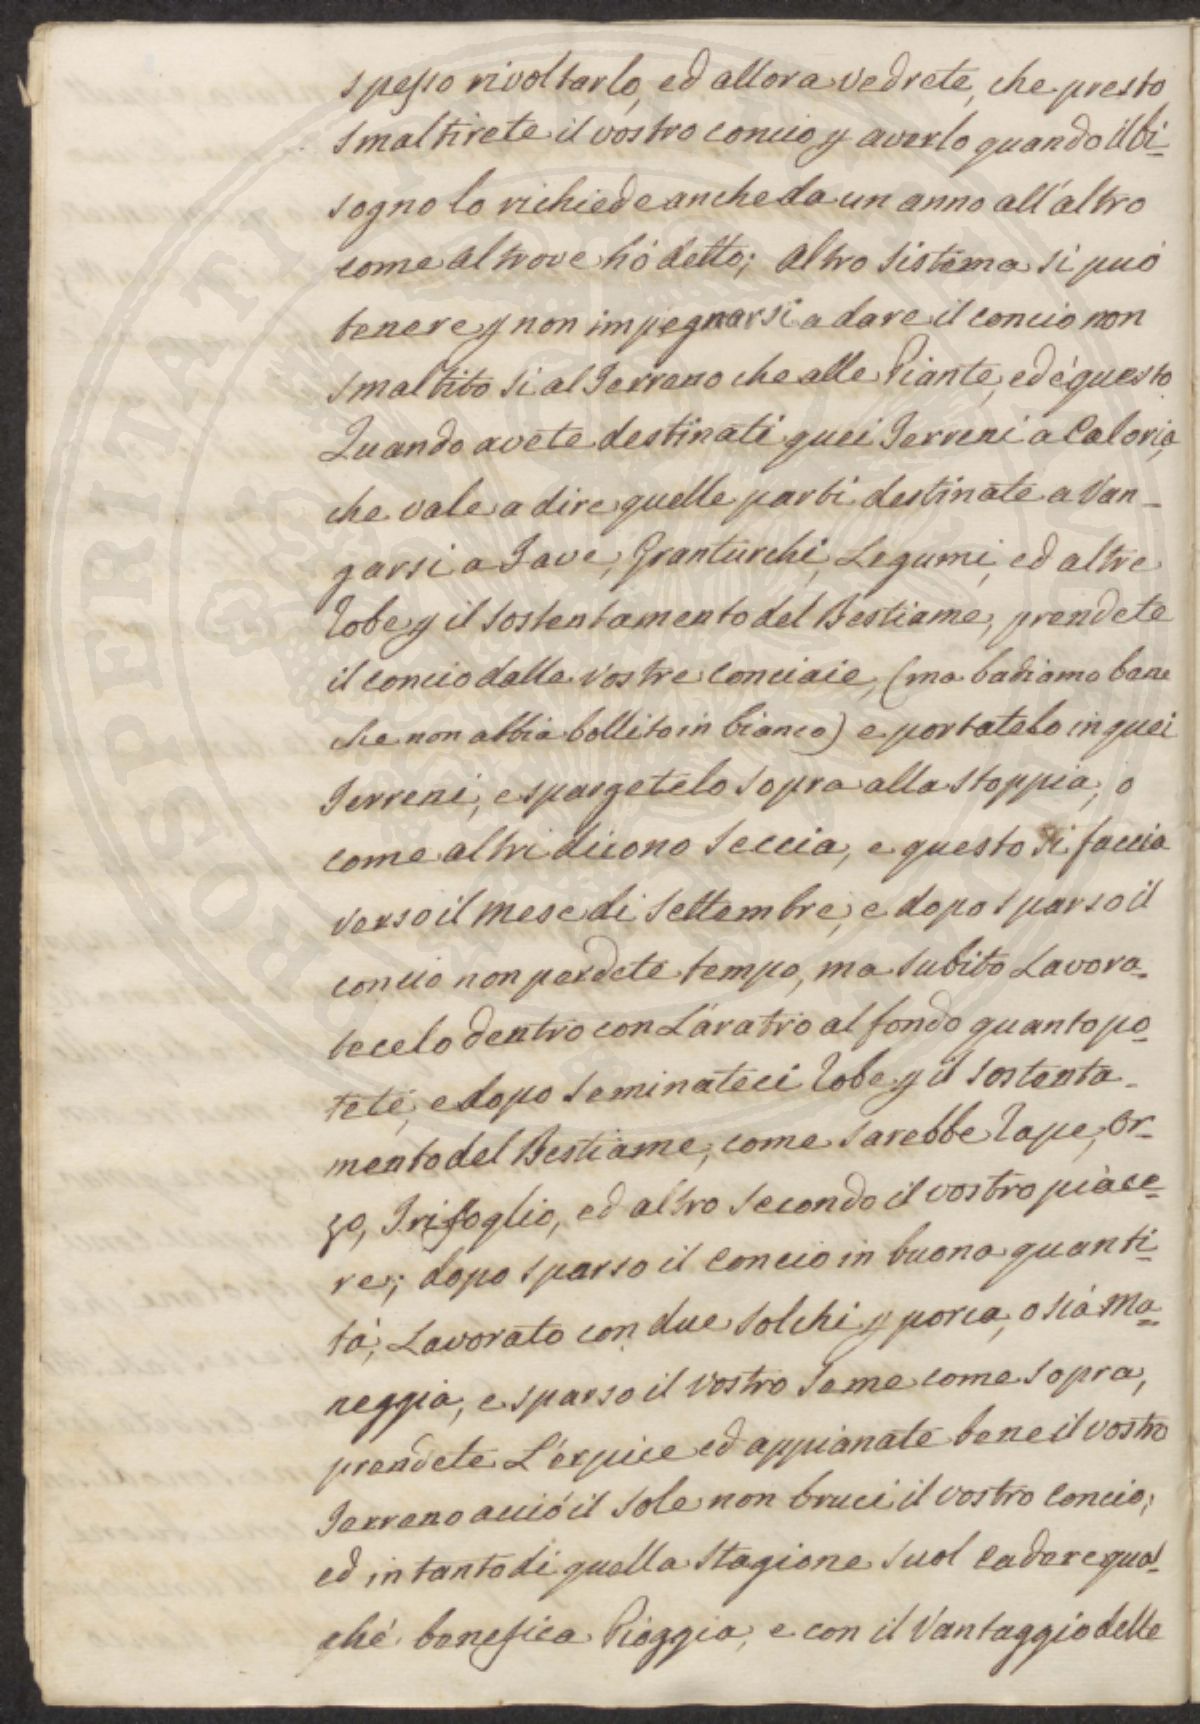 spesso rivoltarlo, ed allora vedrete, che presto
smaltirete il vostro concio p averlo quando il bi=
sogno lo richiede anche da un anno all'altro
come altrove hò detto; altro sistema si può
tenere p non impegnarsi a dare il concio non
smaltito sì al Terreno che alle Piante, ed è questo
Quando avete destinati quei Terreni a Caloria,
che vale a dire quelle parti destinate a Van-
garsi a Fave, Granturchi, Legumi, ed altre
Robe p il sostentamento del Bestiame, prendete
il concio dalle vostre Conciaie, (ma badiamo bene
che non abbia bollito in bianco) e portatelo in quei
Terreni, e spargetelo sopra alla stoppia, o
come altri dicono Seccia, e questo si faccia
verso il mese di Settembre, e dopo sparso il
concio non perdete tempo, ma subito Lavora=
tecelo dentro con L'aratro al fondo quanto po=
tete, e dopo seminateci Robe p il sostenta-
mento del Bestiame, come sarebbe Rape, Or-
zo, Trifoglio, ed altro secondo il vostro piace=
re; dopo sparso il Concio in buona quanti=
tà, Lavorato con due solchi p porca, o sia Ma=
neggia, e sparso il vostro Seme come sopra,
prendete L'erpice ed appianate bene il vostro
Terreno acciò il Sole non bruci il vostro Concio;
ed in tanto di quella stagione suol cadere qual=
ché benefica Pioggia, e con il Vantaggio delle